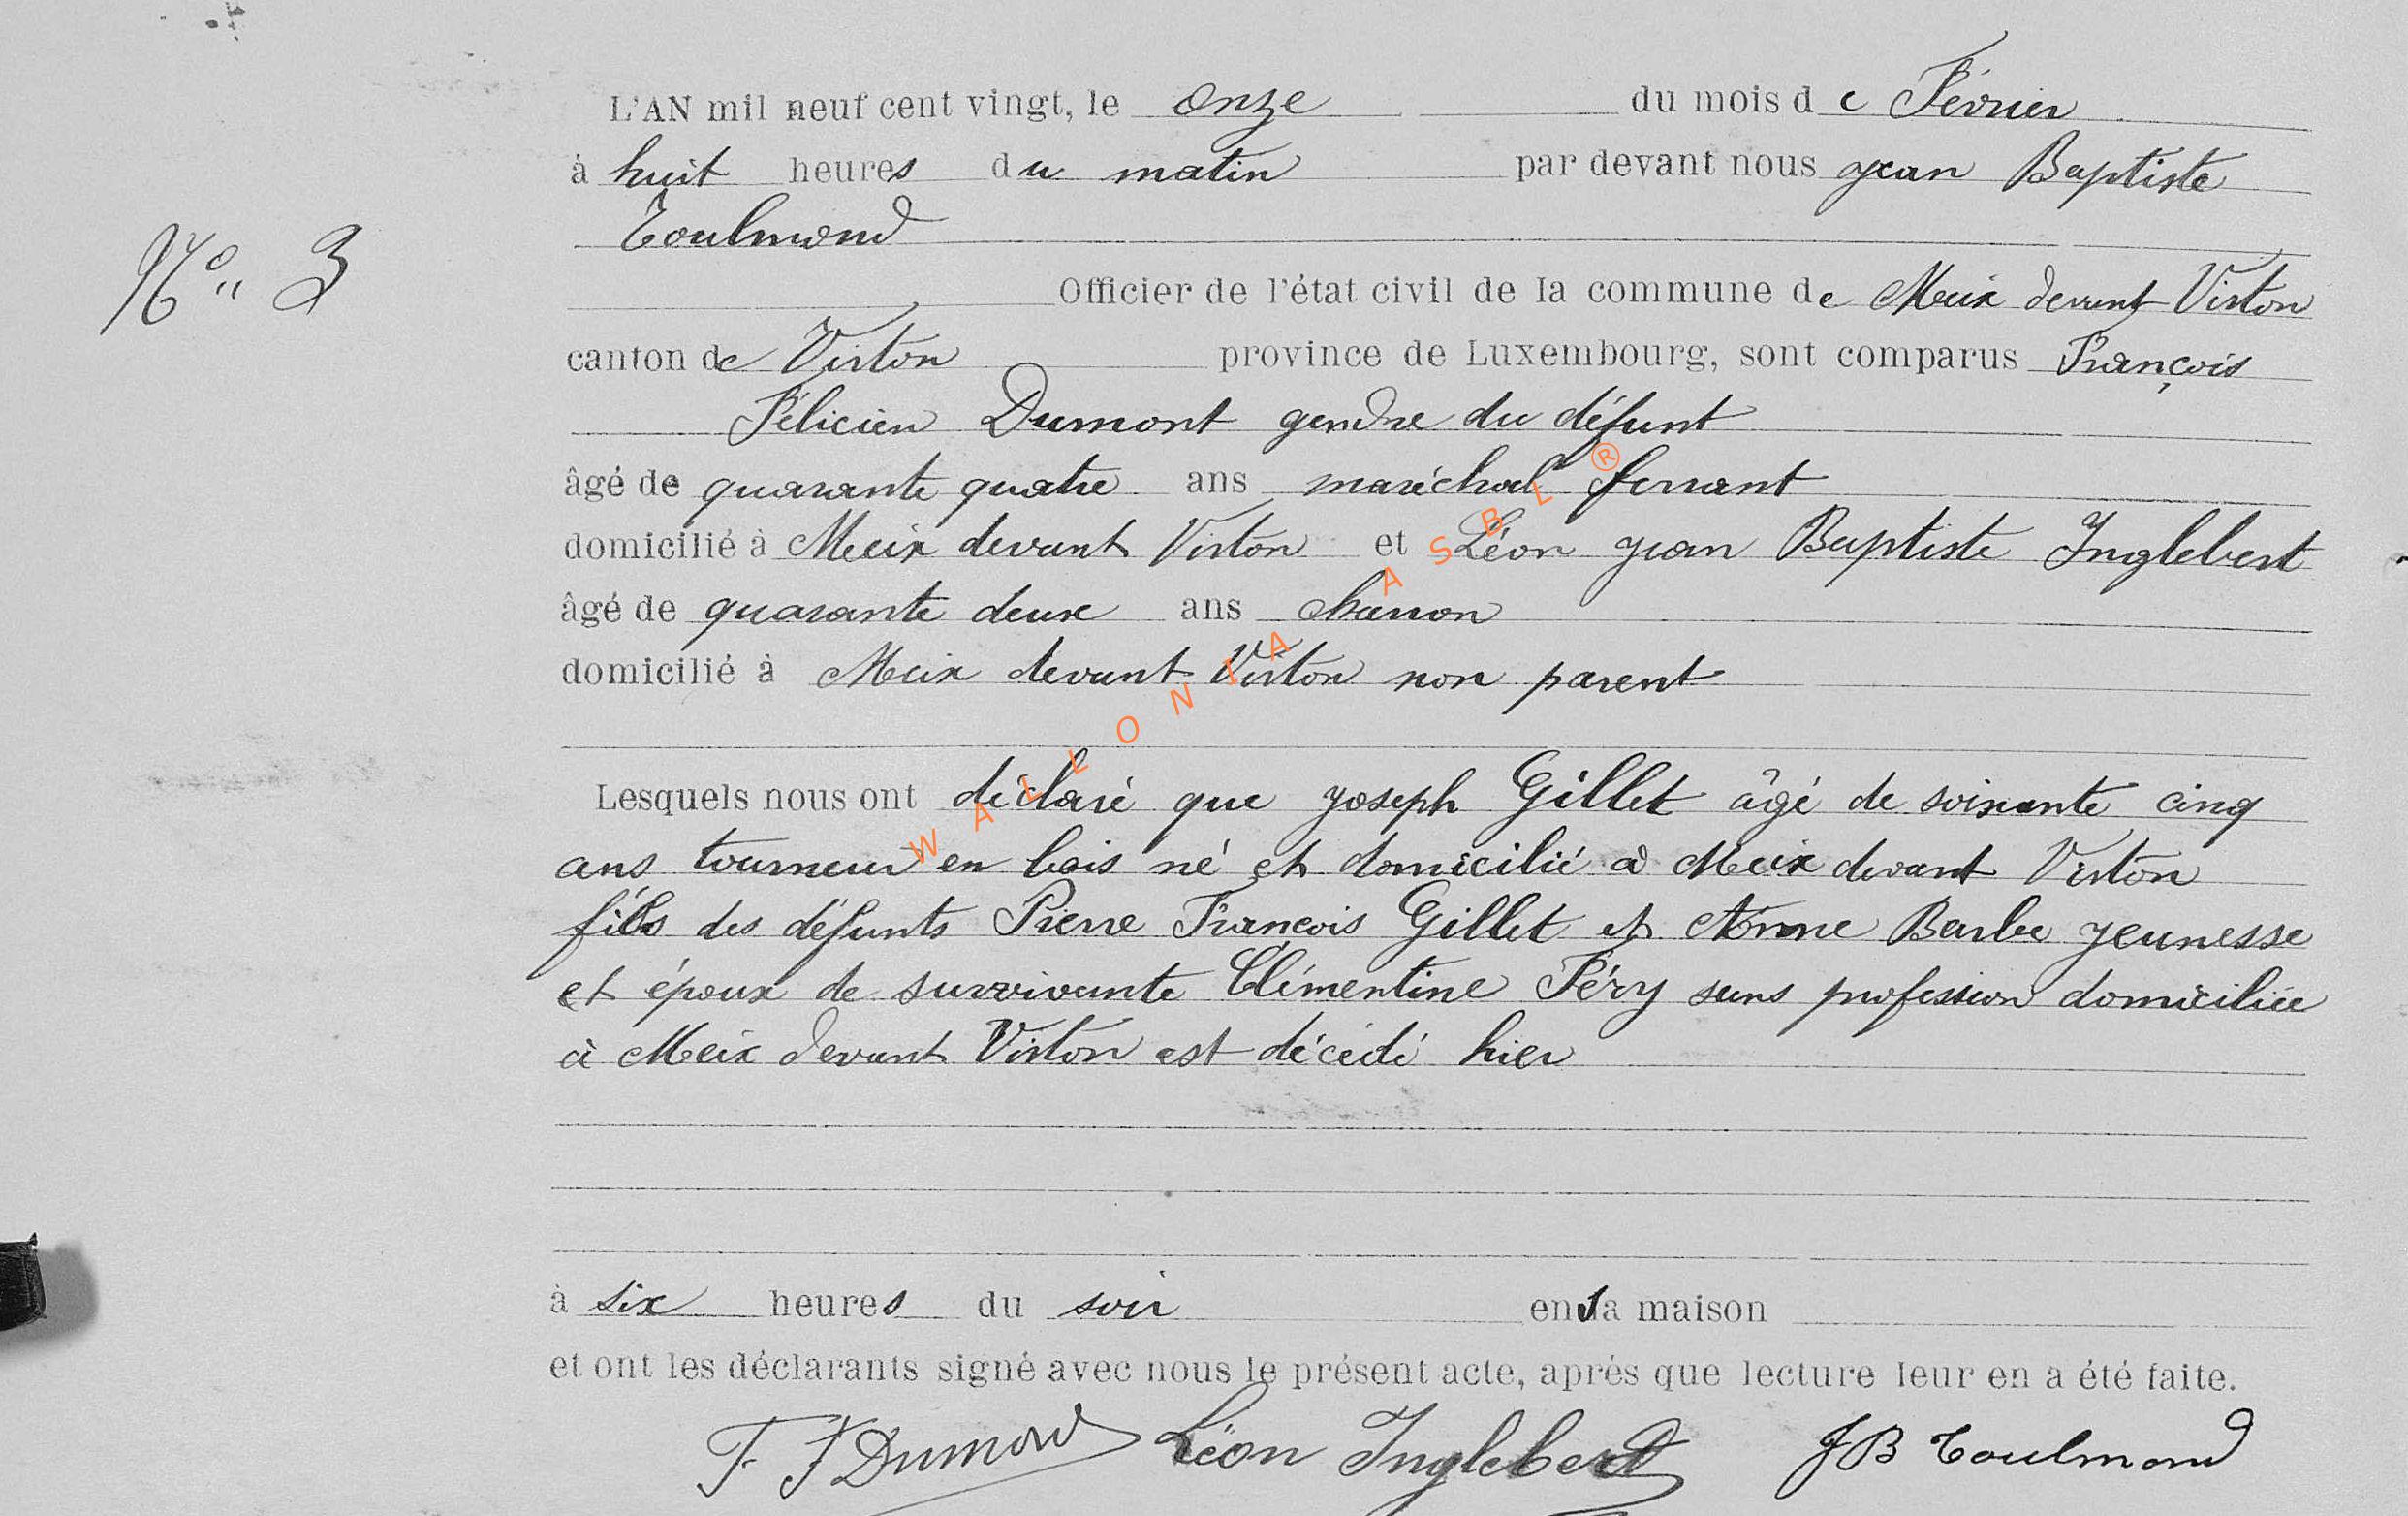 L'AN mil neuf cent vingt, le onze du mois de Février
à huit heures du matin par devant nous Jean Baptiste
Toulmond
N° 3
Officier de l'état civil de la commune de Meix devant Virton
canton de Virton province de Luxembourg, sont comparus François
Félicien Dumont gendre du défunt
âgé de quarante quatre ans maréchal ferrant
domicilié à Meix devant Virton et Léon Jean Baptiste Inglebert
âgé de quarante deux ans charron
domicilié à Meix devant Virton non parent
Lesquels nous ont déclaré que Joseph Gillet âgé de soixante cinq
ans tourneur en bois né et domicilié à Meix devant Virton
fils des défunts Pierre François Gillet et Anne Barbe Jeunesse
et époux de survivante Clémentine Féry sans profession domiciliée
à Meix devant Virton est décédé hier
à six heures du soir en sa maison
et ont les déclarants signé avec nous le présent acte, après que lecture leur en a été faite.
F. F Dumont Léon Inglebert JB Toulmond
WALLONIA ASBL ®